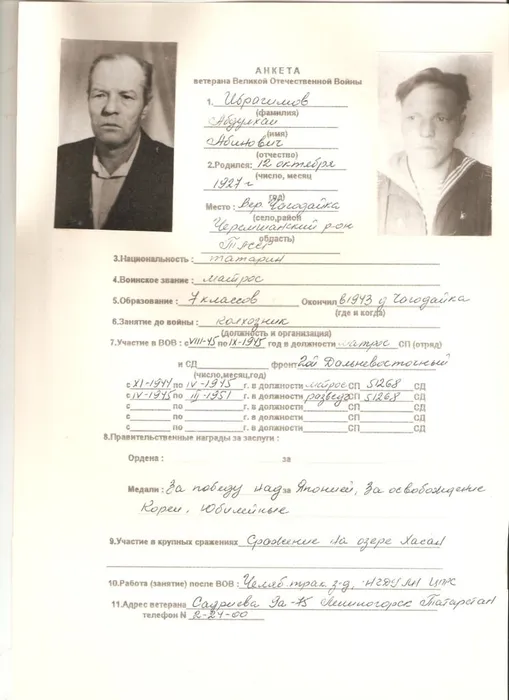 АНКЕТА
ветерана Великой Отечественной Войны
1. Ибрагимов
(фамилия)
Абдулхай
(имя)
Абинович
(отчество)
2.Родился: 12 октября
(число, месяц
1927 г
год)
Место : Вер. Чегодайка
(село,район
Черемшанский р-он
область)
ТАССР
3.Национальность : татарин
4.Воинское звание : матрос
5.Образование : 7 классов Окончил в 1943 д Чегодайка
(где и когда)
6.Занятие до войны : колхозник
(должность и организация)
7.Участие в ВОВ : с VIII-45 по IX-1945 год в должности матрос СП (отряд)
и СД фронт 2ой Дальневосточный
(число,месяц,год)
с XI-1944 по IV-1945 г. в должности матрос СП 51268 СД
с IV-1945 по III-1951 г. в должности развед СП 51268 СД
с по г. в должности СП СД
с по г. в должности СП СД
8.Правительственные награды за заслуги :
Ордена : за
Медали : За победу над за Японией, За освобождение
Кореи, Юбилейные
9.Участие в крупных сражениях Сражение на озере Хасан
10.Работа (занятие) после ВОВ : Челяб. трак. з-д, НГДУ ЛН ЦПРС
11.Адрес ветерана Садриева 9а-75 Лениногорск Татарстан
телефон N 2-24-00